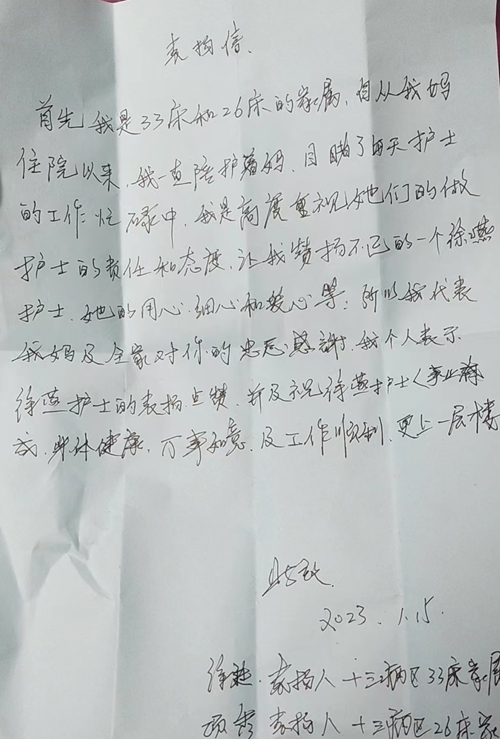 表扬信.
首先,我是33床和26床的家属,自从我妈
住院以来,我一直陪护着妈,目睹了每天护士
的工作忙碌中,我是高度重视她们的做
护士的责任和态度,让我赞扬不已的一个徐燕
护士,她的用心、细心和爱心等;所以我代表
我妈及全家对你的忠忠感谢.我个人表示
徐燕护士的表扬点赞,并及祝徐燕护士《事业
成,身体健康,万事如意,及工作顺利,更上一层楼
此致
2023.1.15.
徐燕.表扬人 十三病区33床家属
表扬人 十三病区26床家